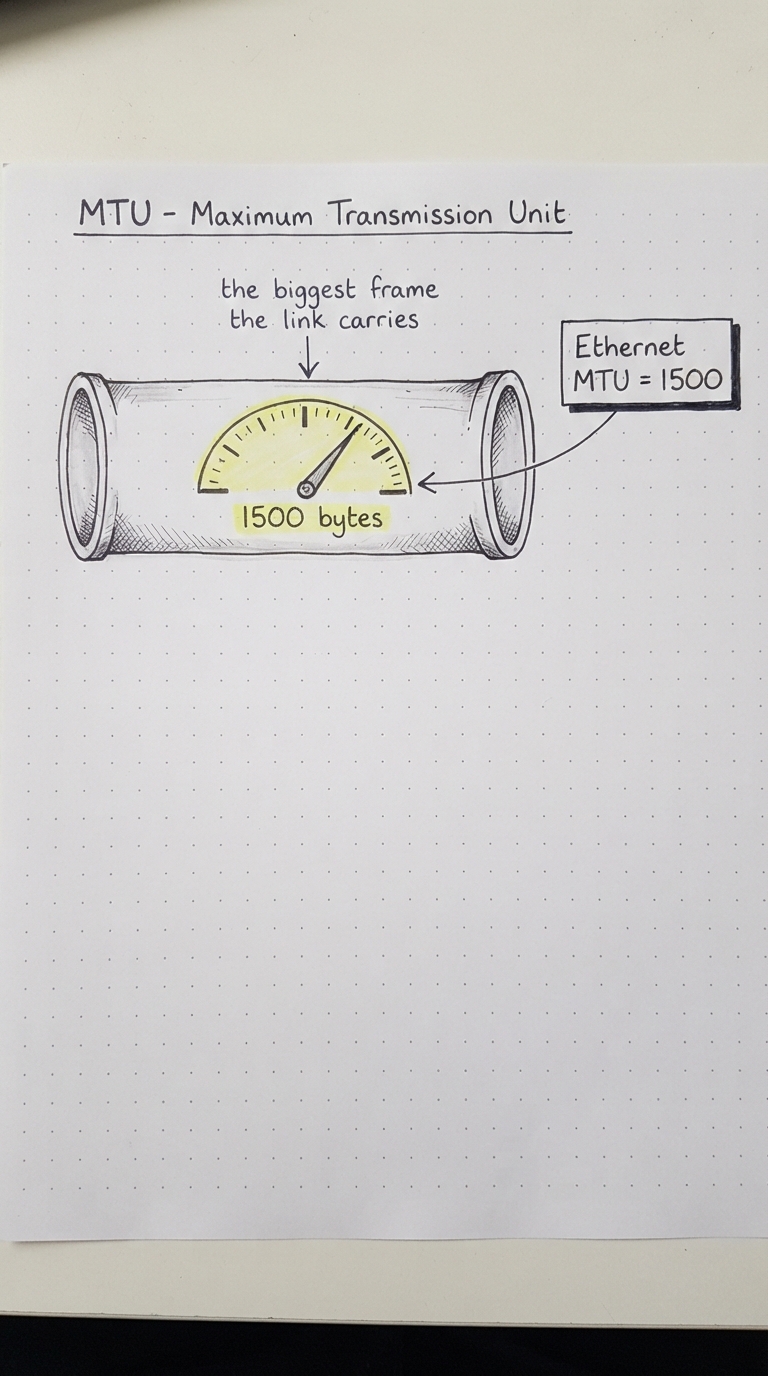 MTU - Maximum Transmission Unit
the biggest frame
the link carries
Ethernet
MTU = 1500
1500 bytes